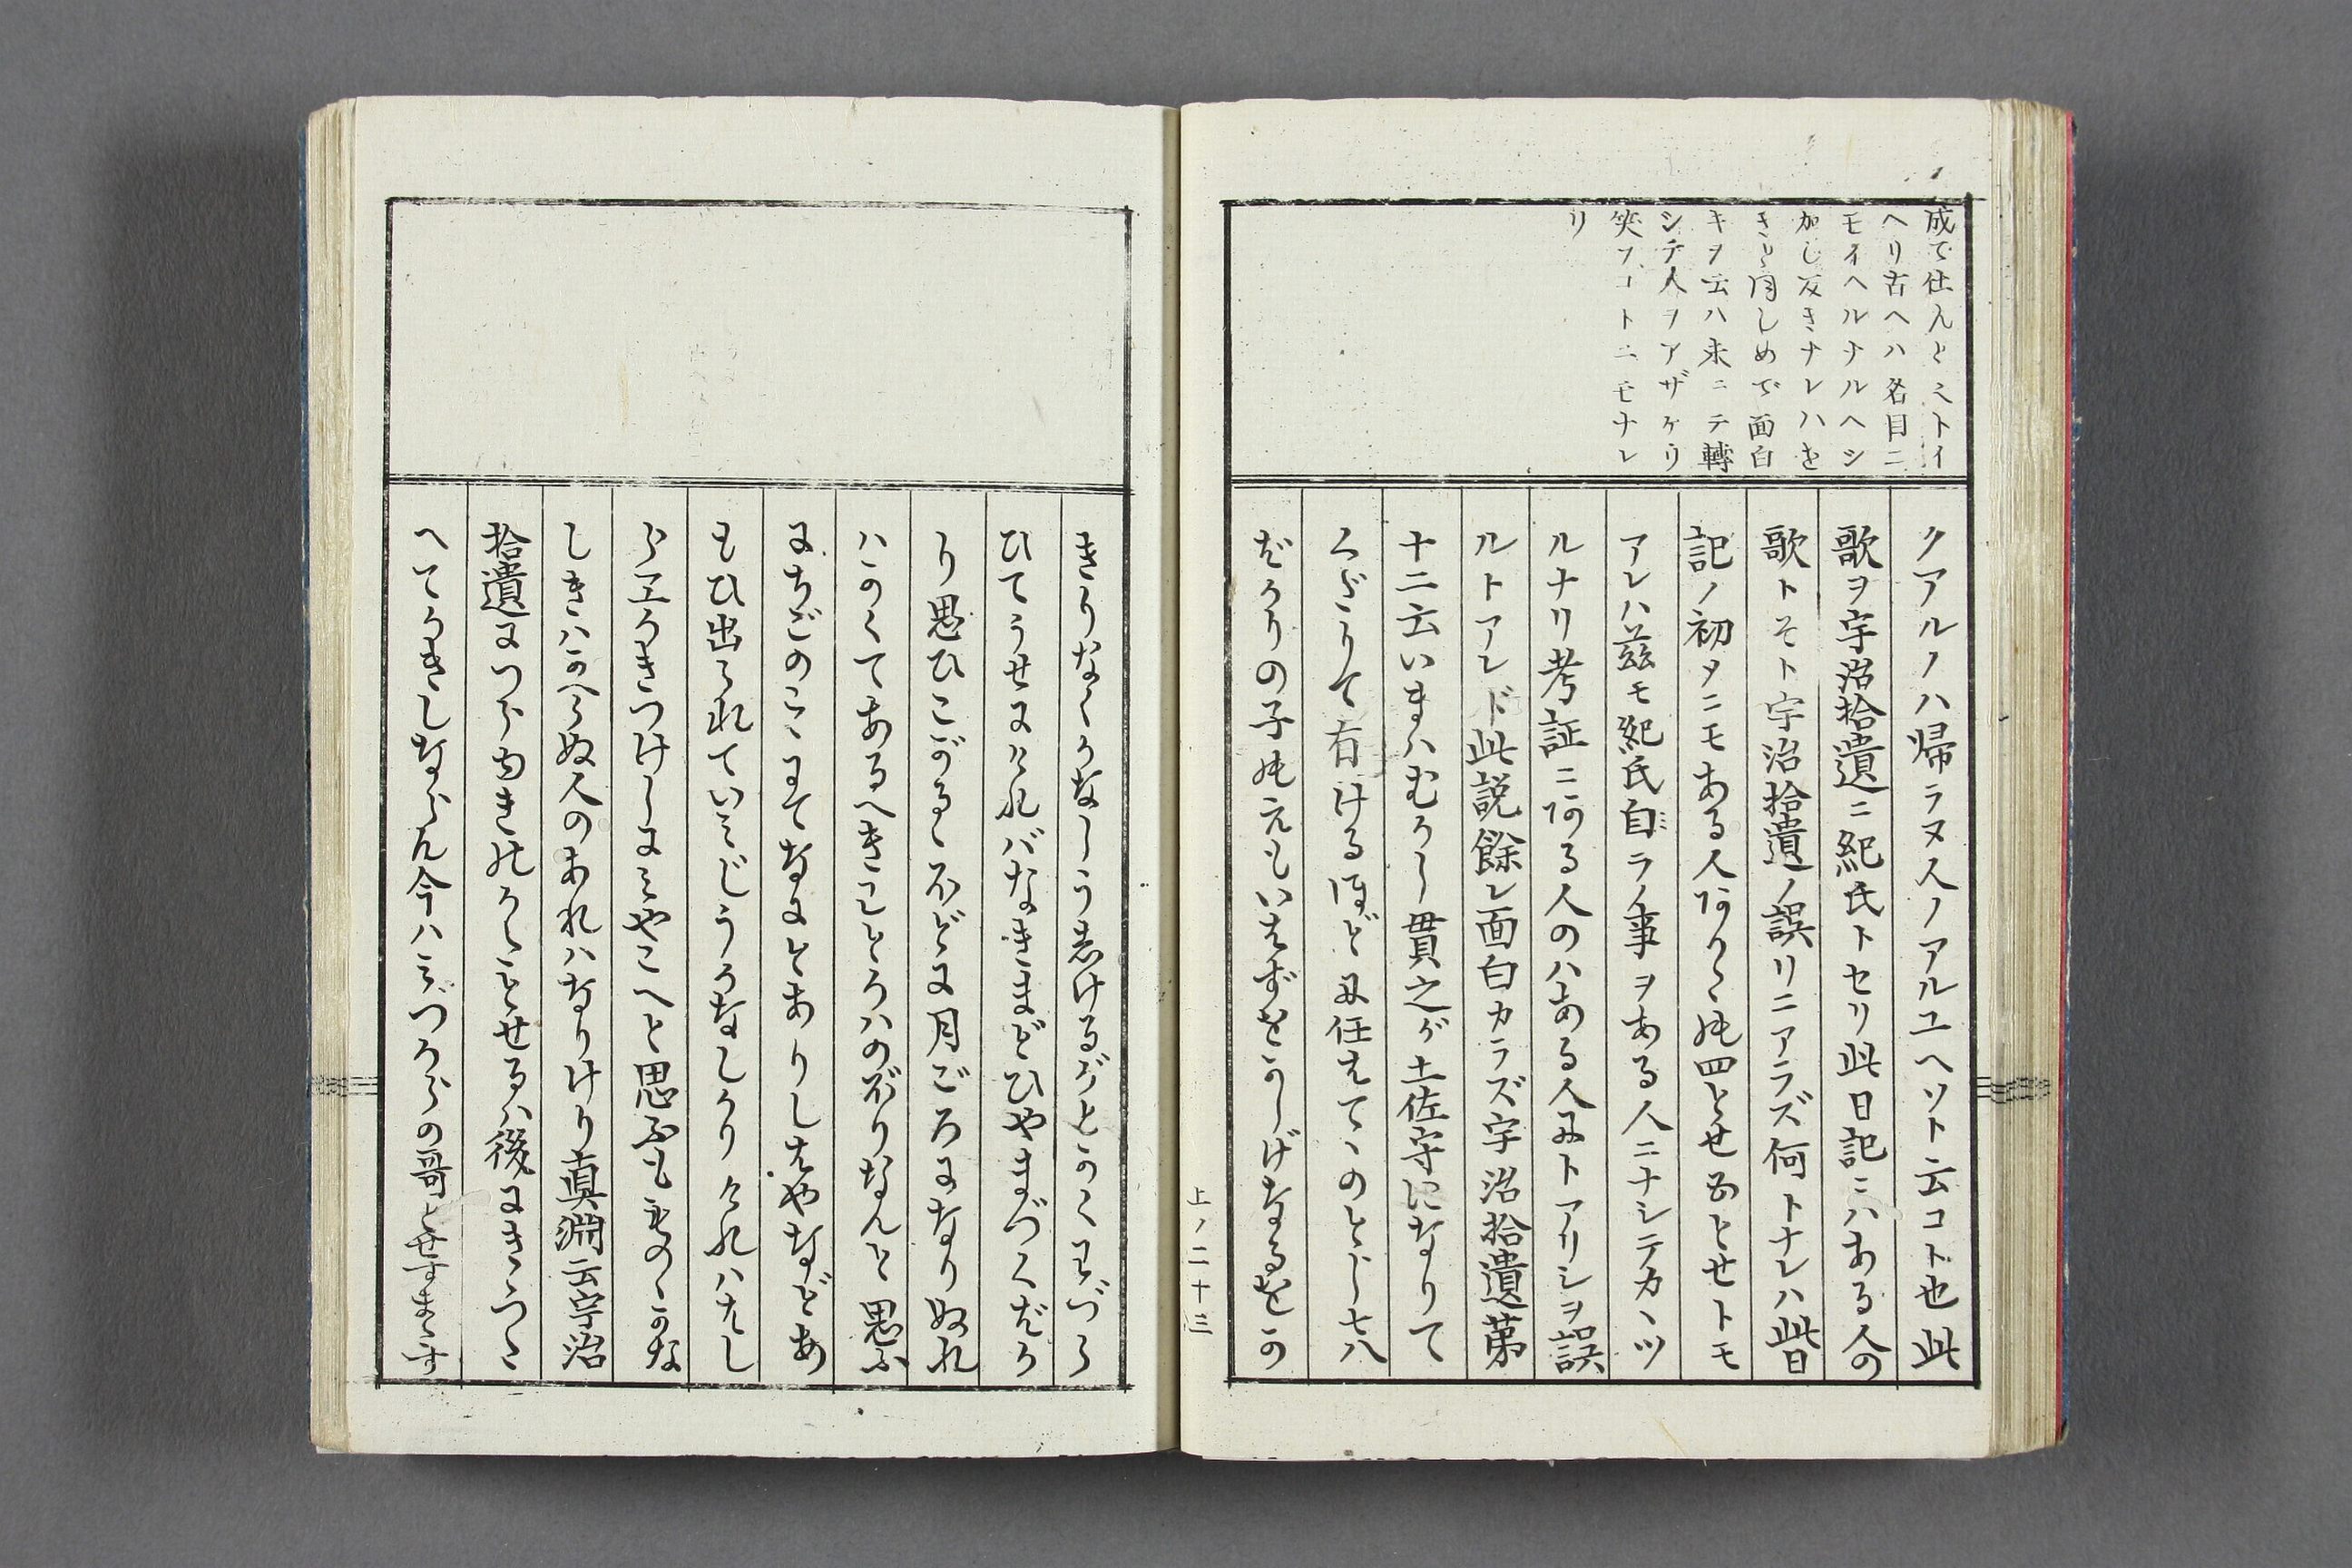 成で仕んとミトイ
ヘリ古ヘハ名目ニ
モイヘルナルヘシ
加し反きナレハを
きと同しめで面白
キヲ云ハ末ニテ轉
シテ人ヲアザケリ
笑フコトニモナレ
リ
クアルノハ帰ラヌ人ノアルユヘソト云コト也此
歌ヲ宇治拾遺ニ紀氏トセリ此日記ニハある人の
歌トそト宇治拾遺ノ誤リニアラズ何トナレハ此日
記ノ初メニモある人
アレハ茲モ紀氏自ラノ事ヲある人ニナシテカヽツ
ルナリ考証ニ或る人のハある人よトアリシヲ誤
ルトアレド此説餘レ面白カラズ宇治拾遺第
十二云いまハむかし貫之が土佐守になりて
くだりて有けるほどに任はてゝのとし七八
ばかりの子のえもいはずをかしげなるをか
きりなくかなしう志けるがとかくわづら
ひてうせにけれバなきまどひやまづくばか
り思ひこがるゝほどに月ごろになりぬれ
ハかくてあるへきことかハのぼりなんと思ふ
にちごのこゝにてなにとありしはやなどお
もひ出られていみじうかなしかりけれハはし
らエかきつけしにみやこへと思ふもものゝかな
しきハかへらぬ人のあれハなりけり真淵云宇治
拾遺に
へてかきしならん今ハミづからの哥とせずまゝす
上ノ二十三